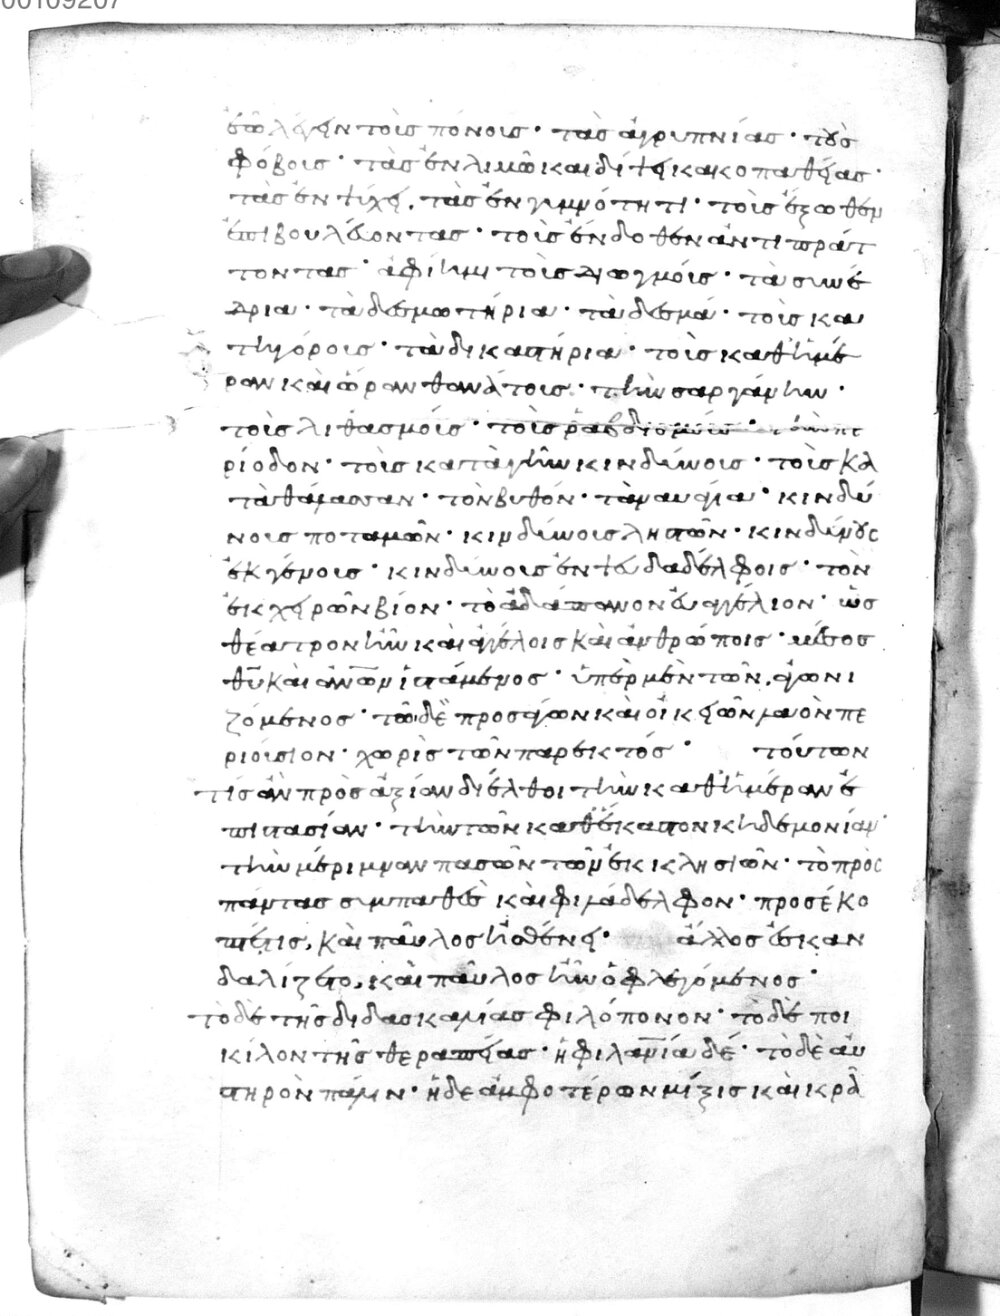 00109207
ἐῶ λέγειν τοῖσ πόνοισ · τὰσ ἀγρυπνίασ · τοὺσ
φόβοισ · τὰσ ἐν λιμῶ καὶ δίψει κακοπαθείασ ·
τὰσ ἐν ψύχει, τὰσ ἐν γυμνότητι · τοῖσ ἔξωθεν
ἐπιβουλέυοντασ · τοῖσ ἔνδοθεν ἀντιπράτ
τοντασ · ἀφίημι τοῖσ διωγμόισ · τὰ συνέ
δρια · τὰ δεσμωτήρια · τὰ δεσμά · τοῖσ κα
τηγόροισ · τὰ δικαστήρια · τοῖσ καθ ἡμέ
ραν καὶ ὥραν θανάτοισ · τὴν σαργάνην ·
τοῖσ λιθασμόισ · τοῖσ ῥαβδισμόισ · τὴν πε
ρίοδον · τοῖσ κατὰ γῆν κινδύνοισ · τοῖσ κα
τὰ θάλασσαν · τὸν βυθόν · τὰ ναυάγια · κινδύ
νοισ ποταμῶν · κινδύνοισ ληστῶν · κινδύνουσ
ἐκ γένουσ · κινδύνοισ ἐν ψευδαδέλφοισ · τὸν
ἐκ χειρῶν βίον · τὸ ἀδάπανον ἐυαγγέλιον · ὡσ
θέατρον ἦν καὶ ἀγγέλοισ καὶ ἀνθρώποισ · μέσοσ
θῦ καὶ ἀνων ἱστάμενοσ · ὑπὲρ μὲν τῶν, ἀγωνι
ζόμενοσ · τῶ δὲ προσάγων καὶ οἰκειῶν λαὸν πε
ριούσιον · χωρὶσ τῶν παρεκτόσ · τόυτων
τίσ ἂν πρὸσ ἀξίαν διέλθοι τὴν καθ ἡμέραν ἐ
πιστασίαν · τὴν τῶν καθ ἕκαστον κηδεμονίαν ·
τὴν μέριμναν πασῶν τῶν ἐκκλησιῶν · τὸ πρὸσ
πάντασ συμπαθὲσ καὶ φιλάδελφον · προσέκο
πτέ τισ, καὶ παῦλοσ ἠσθένει · ἄλλοσ ἐσκαν
δαλίζετο, καὶ παῦλοσ ἦν ὁ φλεγόμενοσ ·
τὸ δὲ τῆσ διδασκαλίασ φιλόπονον · τὸ δὲ ποι
κίλον τῆσ θεραπείασ · ἡ φιλανία δέ · τὸ δὲ αὐ
στηρὸν πάλιν · ἡ δε ἀμφοτέρων μίξισ καὶ κρᾶ